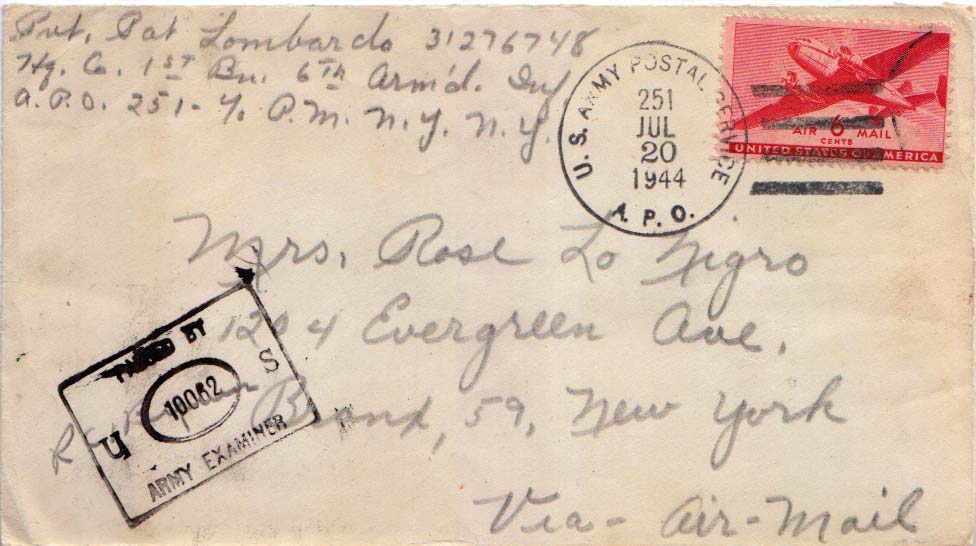 Pvt. Pat Lombardo 31276748
Hq. Co. 1ST Bn. 6Th Arm'd. Inf
A.P.O. 251 - % P.M. N.Y. N.Y.
U.S. ARMY POSTAL SERVICE
251
JUL
20
1944
A.P.O.
AIR 6 MAIL
CENTS
UNITED STATES OF AMERICA
Mrs. Rose Lo Nigro
1204 Evergreen Ave.
Bronx, 59, New York
Via - Air - Mail
PASSED BY
U 10062 S
ARMY EXAMINER